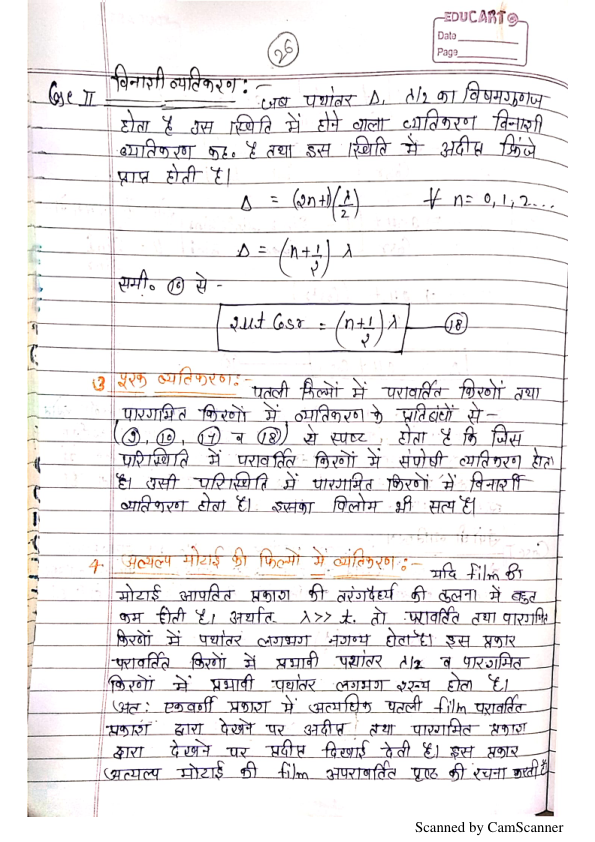 EDUCART
Date
Page
26
Case II विनाशी व्यतिकरण :-
जब पथांतर Δ, λ/2 का विषमगुणज
होता है उस स्थिति में होने वाला व्यतिकरण विनाशी
व्यतिकरण कह. है तथा इस स्थिति में अदीप्त फ्रिंजे
प्राप्त होती है।
Δ = (2n+1)(λ/2) ∀ n = 0, 1, 2...
Δ = (n+1/2) λ
समी. (16) से -
2μt Cosr = (n+1/2) λ —(18)
3 पूरक व्यतिकरण:-
पतली फिल्मों में परावर्तित किरणों तथा
पारगमित किरणों में व्यतिकरण के प्रतिबंधों से -
(9), (10), (17) व (18) से स्पष्ट होता है कि जिस
परिस्थिति में परावर्तित किरणों में संपोषी व्यतिकरण होता
है। उसी परिस्थिति में पारगमित किरणों में विनाशी
व्यतिकरण होता है। इसका विलोम भी सत्य है।
4. अत्यल्प मोटाई की फिल्मों में व्यतिकरण :-
यदि film की
मोटाई आपतित प्रकाश की तरंगदैर्ध्य की तुलना में बहुत
कम होती है। अर्थात. λ>> t. तो परावर्तित तथा पारगमित
किरणों में पथांतर लगभग नगण्य होता है। इस प्रकार
परावर्तित किरणों में प्रभावी पथांतर λ/2 व पारगमित
किरणों में प्रभावी पथांतर लगभग शून्य होता है।
अत: एकवर्णी प्रकाश में अत्यधिक पतली film परावर्तित
प्रकाश द्वारा देखने पर अदीप्त तथा पारगमित प्रकाश
द्वारा देखने पर प्रदीप्त दिखाई देती है। इस प्रकार
अत्यल्प मोटाई की film अपरावर्तित पृष्ठ की रचना करती है
Scanned by CamScanner